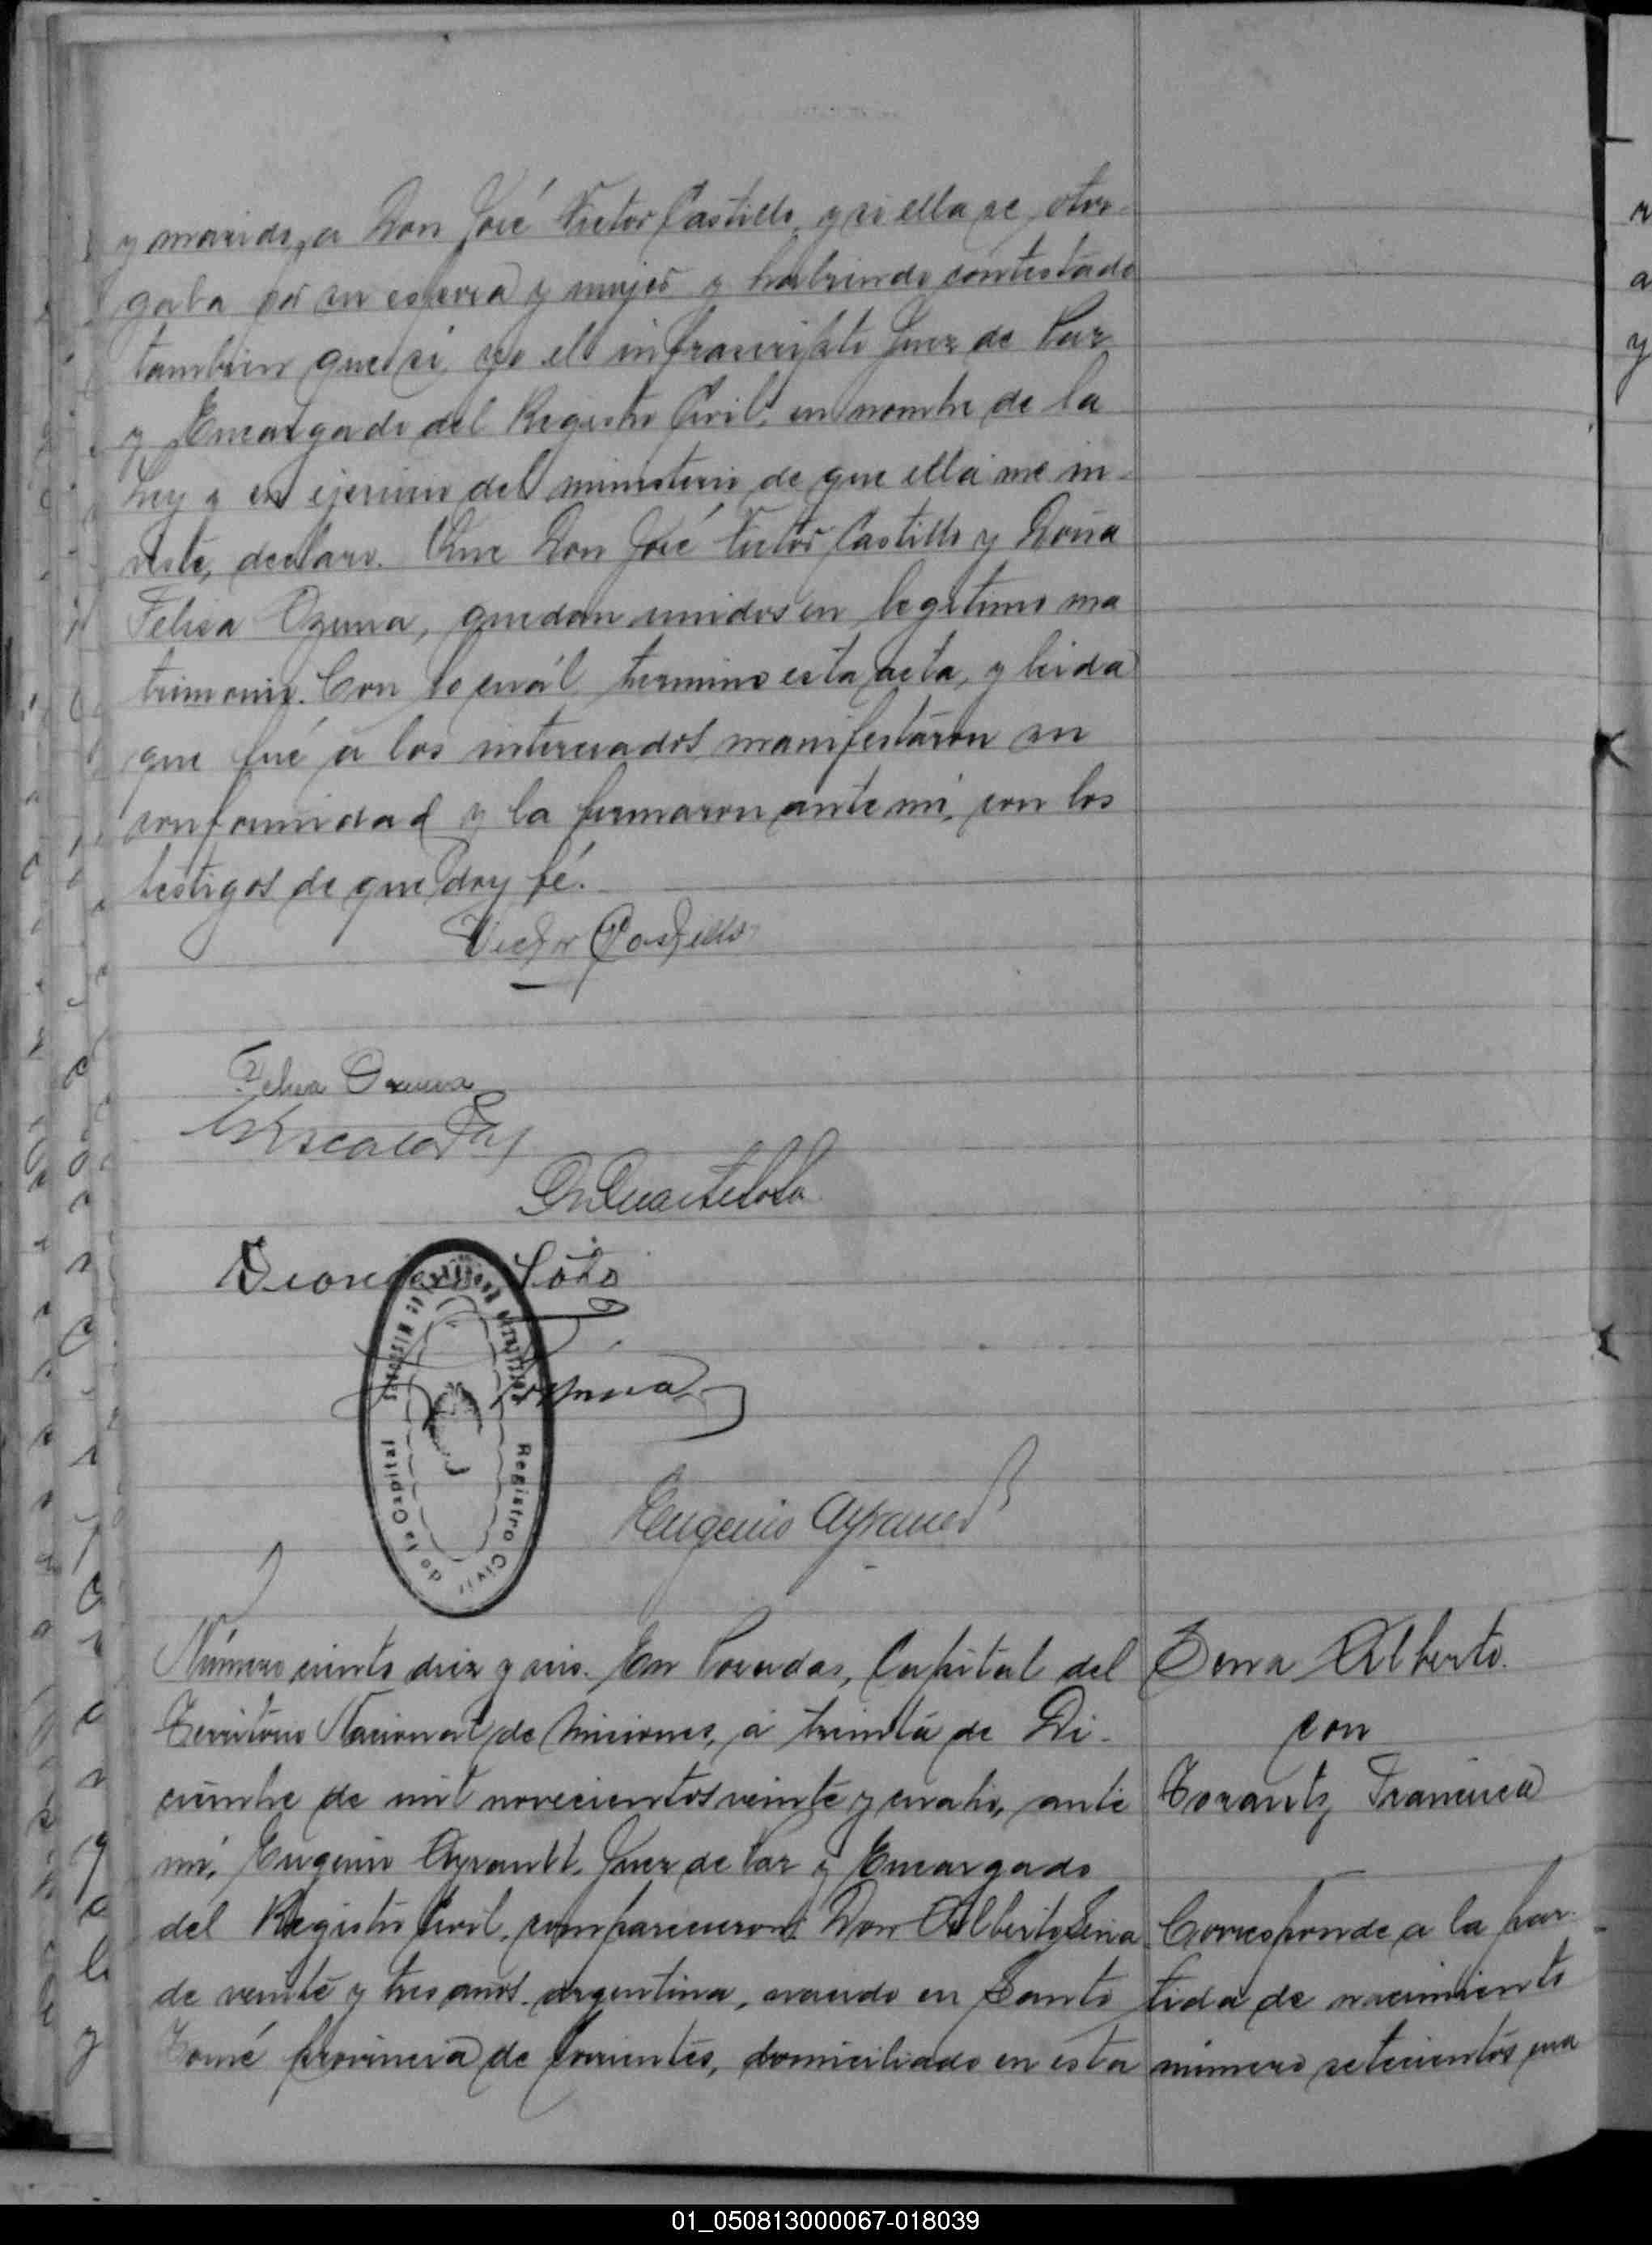 y marido, a Don José Victor Castillo, y si ella se otor-
gaba por su esposa y mujer y habiendo contestado
tambien que si, yo el infrascripto Juez de Paz
y Encargado del Registro Civil, en nombre de la
Ley y en ejercicio del ministerio de que ella me in-
viste, declaro. Que Don José Victor Castillo y Doña
Felisa Ozuna, quedan unidos en legitimo ma
trimonio. Con lo cuál termino esta acta, y leida
que fué a los interesados manifestáron su
conformidad y la firmaron ante mi, con los
testigos de que doy fé.
Victor Castillo
Felisa Ozuna
Soto
Eugenio Ayrault
Territorio Nacional de Misiones
Registro Civil de la Capital
Número ciento diez y seis. En Posadas, Capital del
Territorio Nacional de Misiones, á treinta de Di-
ciembre de mil novecientos veinte y cuatro, ante
mi, Eugenio Ayrault, Juez de Paz y Encargado
del Registro Civil, comparecieron: Don Alberto Sena
de veinte y tres años, argentino, nacido en Santo
Tomé provincia de Corrientes, domiciliado en esta
Sena Alberto.
con
Francisca
Corresponde a la par-
tida de nacimiento
número setecientos cua
01_050813000067-018039